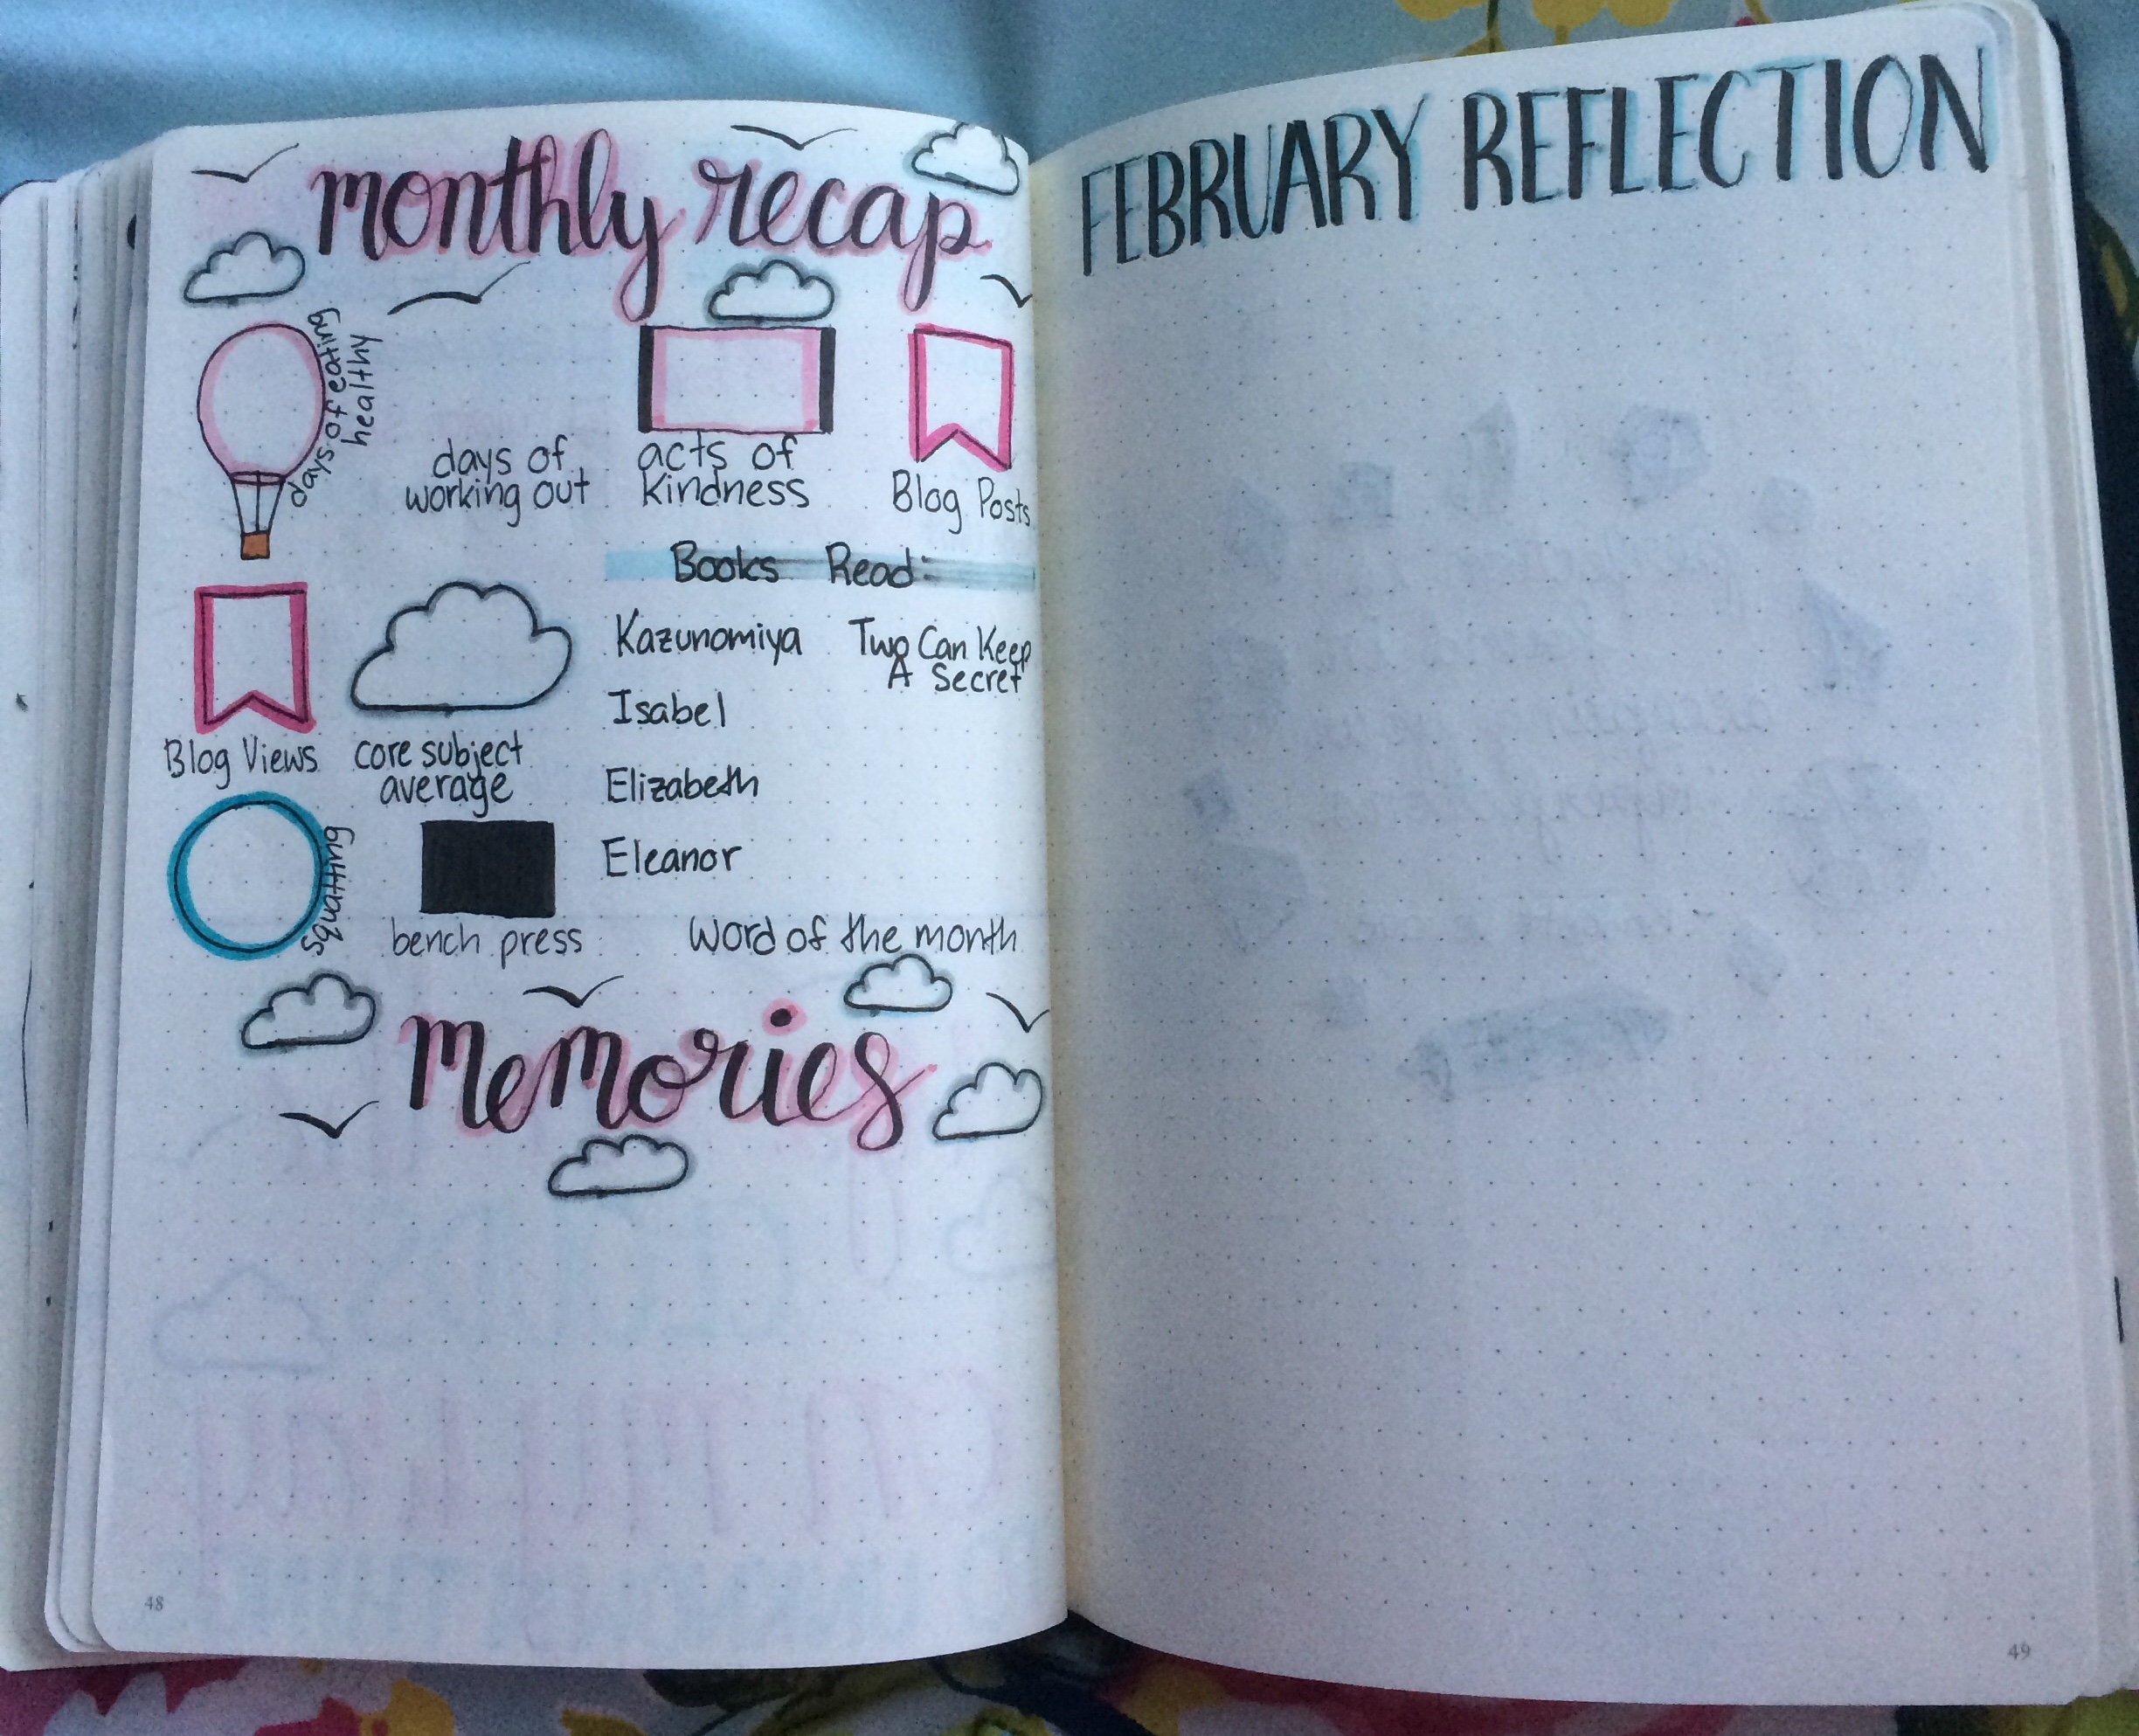 monthly recap
days of eating
healthy
days of
working out
acts of
kindness
Blog Posts
Books Read:
Kazunomiya
Two Can Keep
A Secret
Isabel
Elizabeth
Eleanor
Blog Views
core subject
average
squatting
bench press
Word of the month
Memories
48
FEBRUARY REFLECTION
49